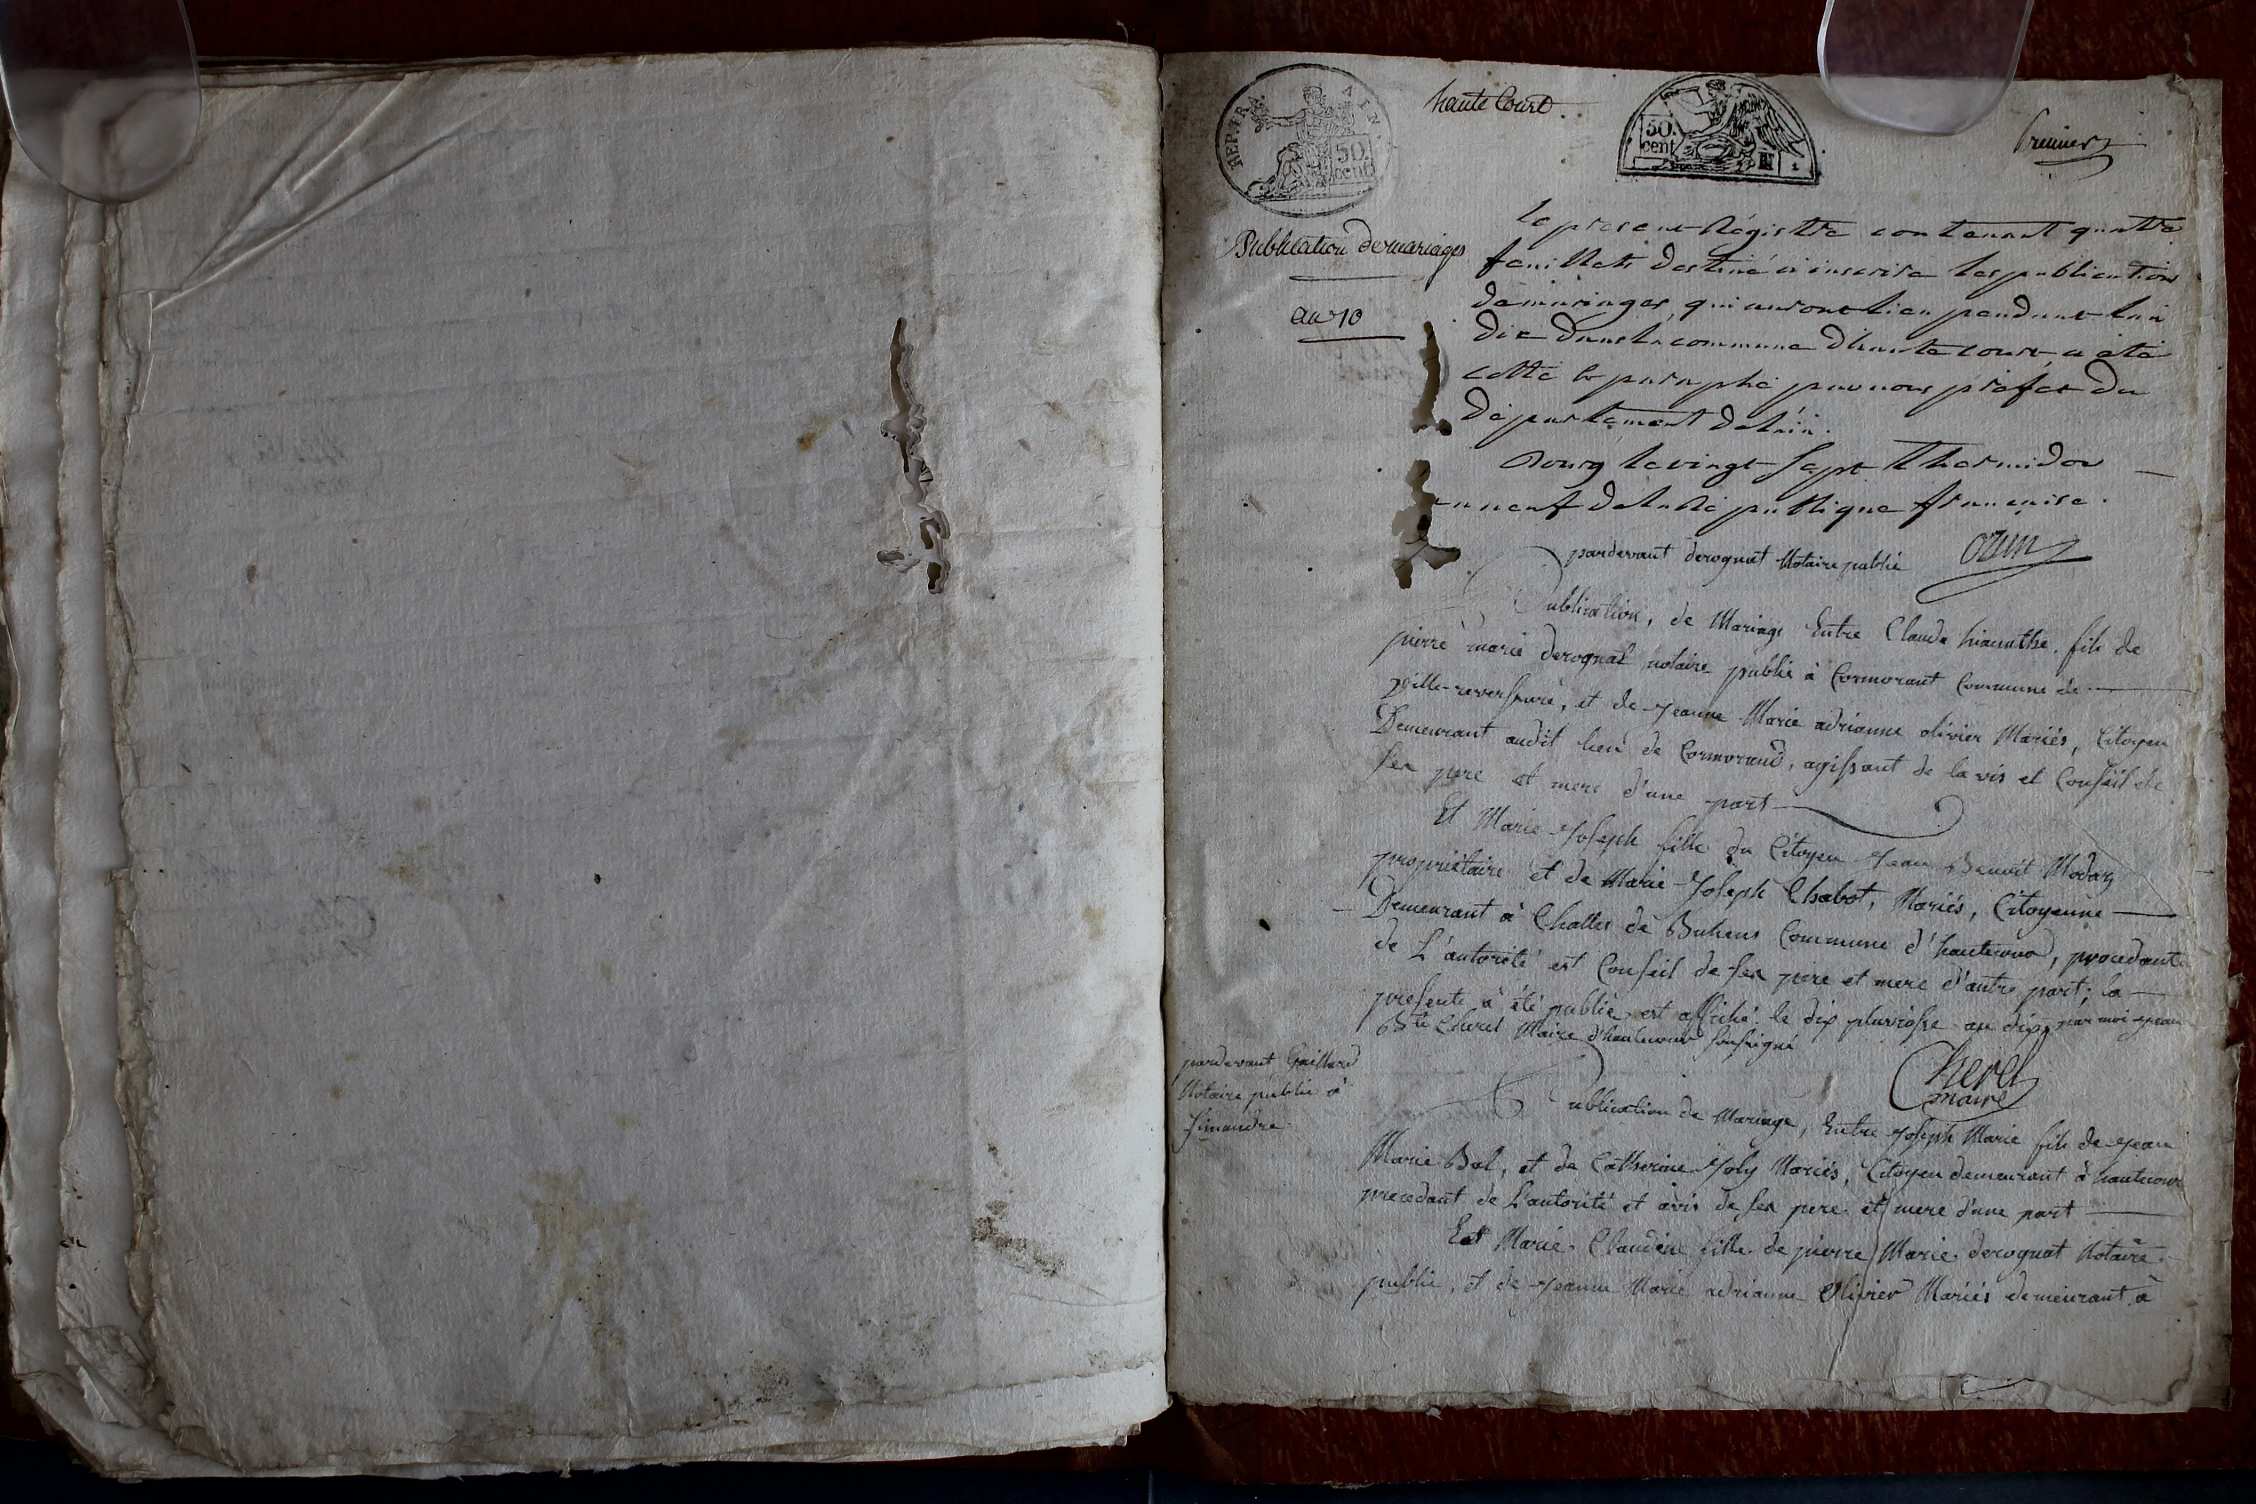 REP. FRA. AIN.
50. cent.
haute Court.
50. cent.
Premier
Publication de mariages
an 10
le present Régistre contenant quatre
feuillets destiné à inscrire les publication
de mariages, qui auront lieu pendant l'an
dix dans la commune d'haute court, a été
cotté et paraphé par nous préfet du
département de l'ain.
Bourg le vingt sept thermidor
an neuf de la République française.
Ozun
pardevant derognat Notaire public
Publication, de Mariage Entre Claude hiacinthe fils de
pierre marie derognat notaire public à Cormorant Commune de
Ville-reversure, et de Jeanne Marie adrianne olivier Mariés, Citoyen
Demeurant audit lieu de Cormorand, agissant de lavis et Conseil de
ses pere et mere d'une part
Et Marie Joseph fille du Citoyen Jean Benoit Modas
propriétaire et de Marie Joseph Chabot, Mariés, Citoyenne
Demeurant à Challes de Buhens Commune d'hautecour, procedant
de L'autorité est Conseil de ses pere et mere d'autre part; la
presente à été publiée est affiché le dix pluviose an dix, par moi Jean
Bte Cheret Maire d'hautecour soussigné
Cheret
maire
pardevant Gaillard
Notaire public à
simandre
Publication de Mariage, Entre Joseph Marie fils de Jean
Marie Bal, et de Catherine Joly Mariés, Citoyen demeurant à hautecour
procedant de L'autorité et avis de ses pere et mere d'une part
Est Marie Claudine fille de pierre Marie derognat Notaire
public, et de Jeanne Marie adrianne Olivier Mariés demeurant à